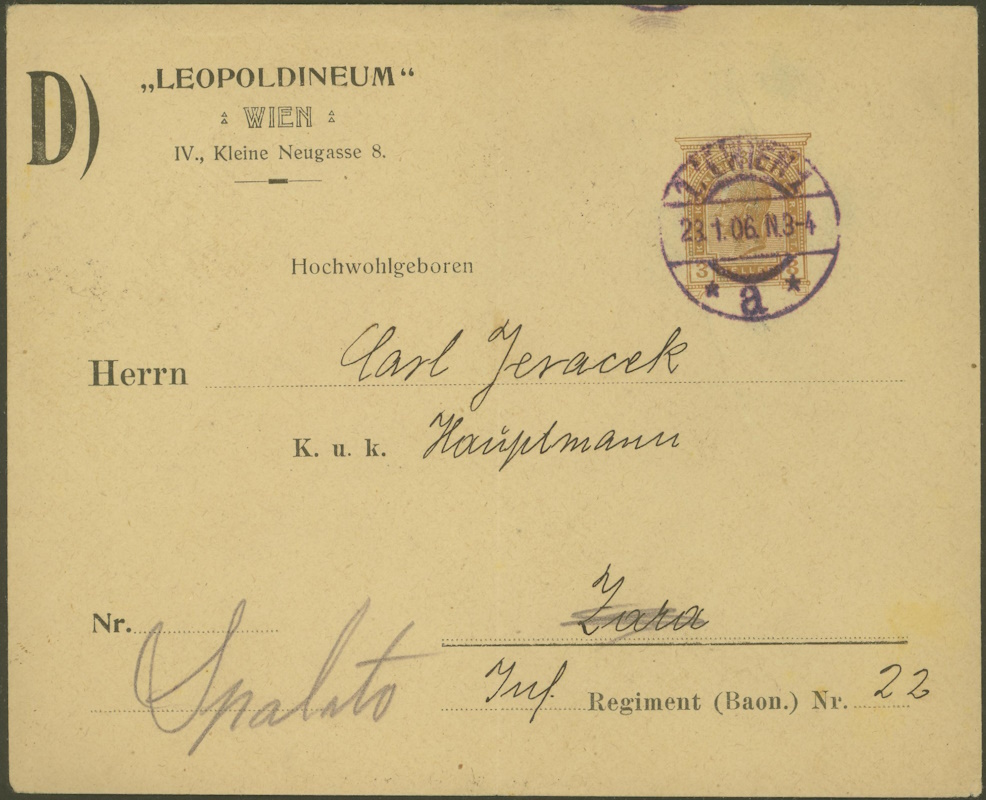 D)
„LEOPOLDINEUM“
WIEN
IV., Kleine Neugasse 8.
WIEN 1
23.1.06. N.3-4
a
3 3
Hochwohlgeboren
Herrn Carl Jeracek
K. u. k. Hauptmann
Zara
Nr.
Spalato
Inf. Regiment (Baon.) Nr. 22